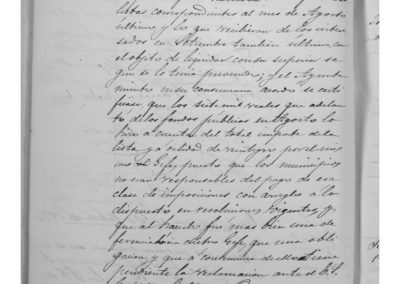 listas correspondientes al mes de Agosto
último y lo que recibieron de los intere
sados en Setiembre tambien último, con
el objeto de liquidar con su superior se
gun se le tenia prevenido; y el Ayunta
miento en su consecuencia acordó se certi
ficase que los siete mil reales que adelan
tó de los fondos publicos en Agosto lo
hizo a cuenta del total importe de la
lista y a calidad de reintegro por el mis
mo Gefe, puesto que los municipios
no eran responsables del pago de esa
clase de imposiciones con arreglo a lo
dispuesto en resoluciones vigentes y
que al hacerlo fué mas bien una de
ferencia a dicho Gefe que una obli
gacion y que a consecuencia de
pendiente la reclamacion ante el